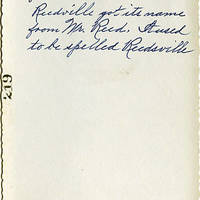 Reedville got its name
from Mr. Reed. It used
to be spelled Reedsville
219